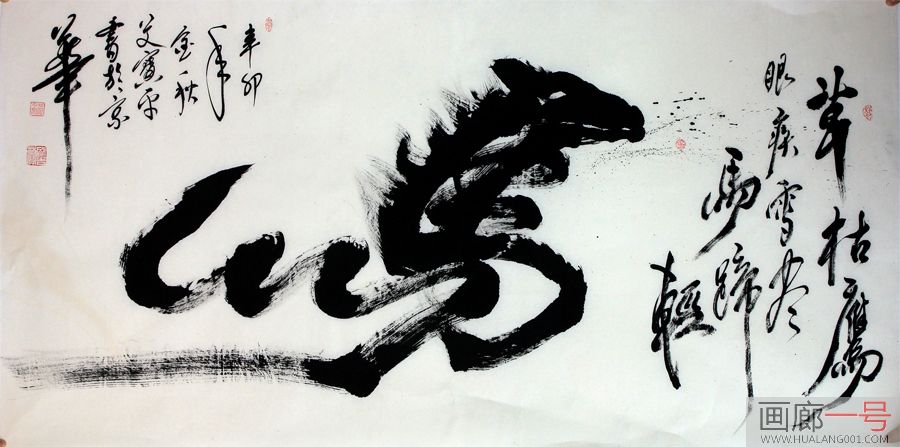 草枯鷹
眼疾雪尽
馬蹄
輕
馬
辛卯
年
金秋
艾寶平
書於京
華
画廊一号
WWW.HUALANG001.COM